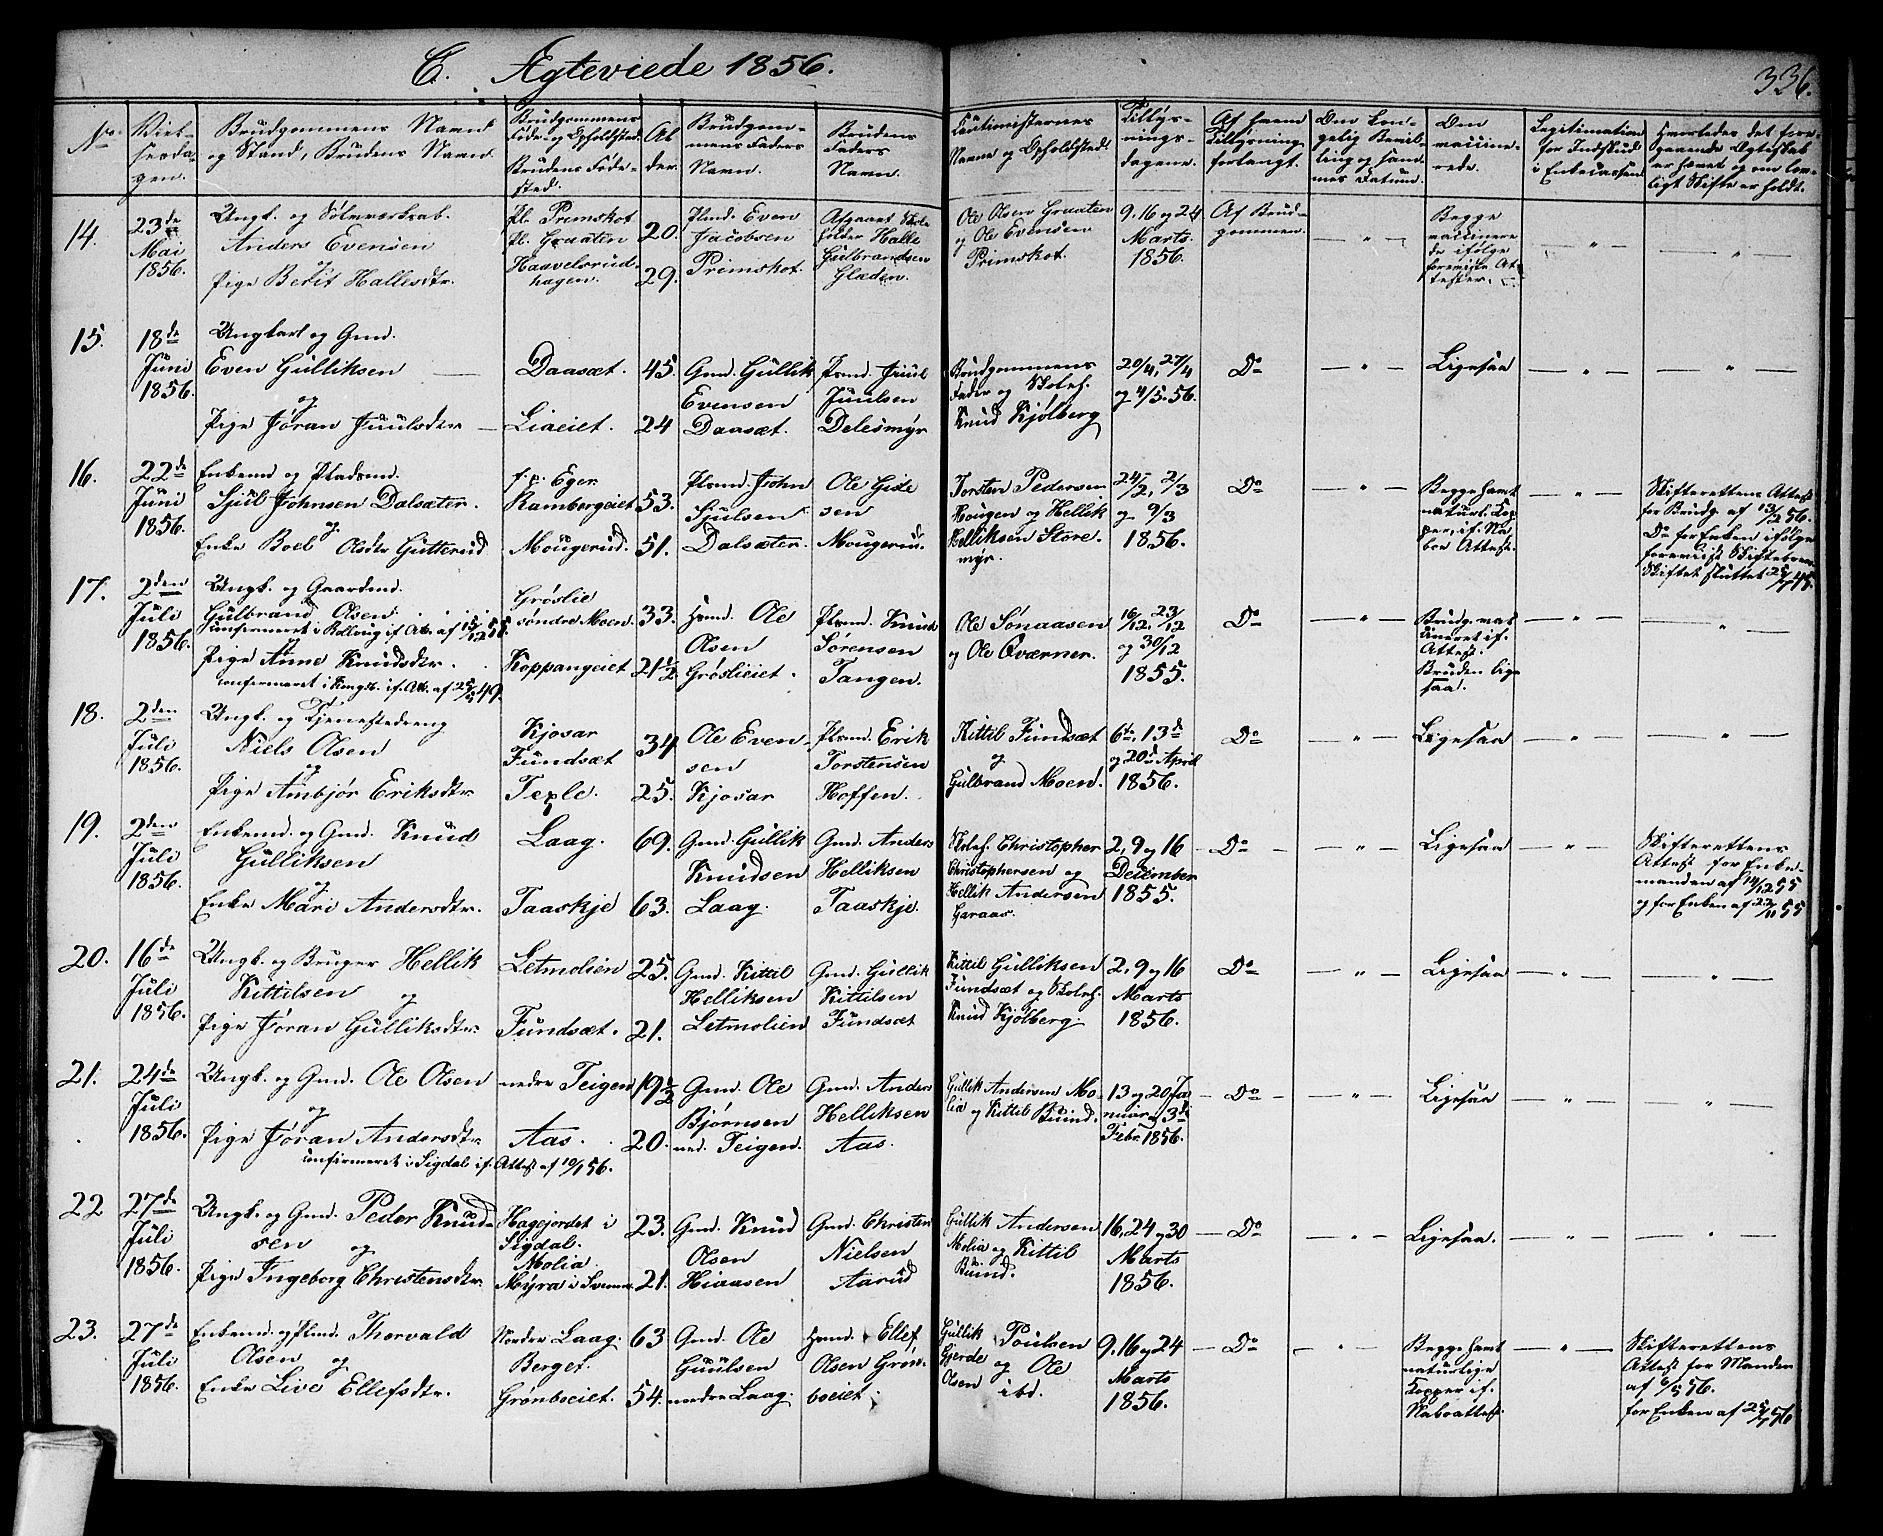 C. Ægteviede 1856.
336.
No.
Viel-
sesda-
gen.
Brudgommens Navn
og Stand, Brudens Navn.
Brudgommens
Føde- og Opholdsted.
BrudensFøde-
sted.
Al-
der.
Brudgom-
mens Faders
Navn.
Brudens
Faders
Navn.
Cautionisternes
Navne og Opholdsted.
Tillys-
nings-
dagene.
Af hvem
Tillysning
forlangt.
Den kon-
gelig Bevil-
ling og sam-
mes Datum.
Om
vaccine-
rede.
Legitimation
for Indskud
i Enkecassen.
Hvorledes det fore-
gaaende Ægteskab
er hævet og om lov-
ligt Skifte er holdt.
14.
23de
Mai
1856.
Ungk. og Sølvverksarb.
Anders Evensen
og
Pige Berit Hallesdtr.
pl. Primskot
pl. Graaten
Haavelsrud-
hagen.
20.
29.
Plmd. Even
Jacobsen
Primskot.
Afgaaet
Halle
Gulbrandsen
Gladen.
Ole Olsen Graaten
og Ole Evensen
Primskot.
9, 16 og 24
Marts.
1856.
Af Brud-
gommen.
— " —
Begge
vaccinere-
de ifølge
foreviste At-
tester.
— " —
— " —
15.
18de
Juni
1856.
Ungkarl og Gmd.
Even Gulliksen
og
Pige Jøran Juulsdtr.
Daasæt.
Liaeiet.
45.
24
Gmd. Gullik
Evensen
Daasæt.
Plsmd. Juul
Juulsen
Delesmyr
Brudgommens
Fader og Skolef.
Knud Kjølberg
20/4, 27/4
og 4/5. 56.
Do
— " —
Ligesaa
— " —
— " —
16.
22de
Juni
1856.
Enkemd og Pladsmd.
Sjul Johnsen Dalsæter.
og
Enke Boel Olsdtr Gutterud
f. p. Eger
Rambergeiet
Mougerud.
53.
51.
Plsmd. John
Sjulsen
Dalsæter.
Ole Gide
sen
Mougerud.
Torsten Pedersen
Hougen og Hellik
Helliksen Store-
myr.
24/2, 2/3
og 9/3
1856.
Do
— " —
Begge havt
naturl. Kop-
per, if. Na-
bo Attest.
— " —
Skifterettens Attest
for Brudg. af 13/2 56.
Do for Enken ifølge
forevist Skiftebrev
Skiftet sluttet
17.
2den
Juli
1856.
Ungk. og Gaardmd.
Gulbrand Olsen.
confirmeret i Rollaug if. Att. af 15/12 55.
Pige Anne Knudsdtr.
confirmeret i Kongsb. if. Att. af 49.
Grøslie
søndre Moen.
Koppangeiet
33.
21½
Hsmd. Ole
Olsen
Grøslieiet.
Plsmd. Knud
Sørensen
Tangen.
Ole Sønaasen
og Ole Qværner.
16/12, 23/12
og 30/12
1855.
Do
— " —
Brudg. vac-
cineret if.
Attest.
Bruden lige-
saa.
— " —
— " —
18.
2den
Juli
1856.
Ungk. og Tjenestedreng
Niels Olsen
og
Pige Ambjør Eriksdtr
Kjosar
Fundsæt
Teple.
34
25.
Ole Even-
sen
Kjosar
Plsmd. Erik
Torstensen
Hoffen.
Kittil Fundsæt
og
Gulbrand Moen.
6te, 13de
og 20de April
1856.
Do
— " —
Ligesaa
— " —
— " —
19.
2den
Juli
1856.
Enkemd. og Gmd. Knud
Gulliksen
og
Enke Mari Andersdtr.
Laag.
Taaskje
69.
63.
Gmd. Gullik
Knudsen
Laag.
Gmd. Anders
Helliksen
Taaskje.
Skolef. Christopher
Christophersen og
Hellik Andersen
Garaas.
2, 9 og 16
December
1855.
— Do —
— " —
Ligesaa
— " —
Skifterettens
Attest for Enke-
manden af 14/12 55
og for Enken af 55
20.
16de
Juli
1856.
Ungk. og Bruger Hellik
Kittilsen og
Pige Jøran Gulliksdtr.
Letmolien
Fundsæt.
25.
21.
Gmd. Kittil
Helliksen
Letmolien
Gmd. Gullik
Kittilsen
Fundsæt
Kittil Gulliksen
Fundsæt og Skolef.
Knud Kjølberg.
2, 9 og 16
Marts
1856.
Do
— " —
Ligesaa
— " —
— " —
21.
24de
Juli
1856.
Ungk. og Gmd. Ole Olsen
og
Pige Jøran Andersdtr
confirmeret i Sigdal if. Attest af 10/1 56.
nedre Teigen
Aas.
19½
20.
Gmd. Ole
Bjørnsen
ned. Teigen.
Gmd. Anders
Helliksen
Aas.
Gullik Andersen Mo-
lia og Kittil Buind.
13 og 20 Ja-
nuar og 3de
Febr 1856.
— Do —
— " —
Ligesaa
— " —
— " —
22
27de
Juli
1856.
Ungk. og Gmd. Peder Knud-
sen og
Pige Ingeborg Christensdtr.
Hagejordet i
Sigdal.
Molia.
Myra i Svenne
23.
21.
Gmd. Knud
Olsen
Hiaasen
Gmd. Christen
Nielsen
Aarud
Gullik Andersen
Molia og Kittil
Buind.
16, 24 og 30
Marts
1856.
— Do
— " —
Ligesaa.
— " —
— " —
23.
27de
Juli
1856.
Enkemd. og Plmd. Thorvald
Olsen og
Enke Live Ellefsdtr.
Nordre Laag.
Berget.
Grønboeiet.
63
54.
Gmd. Ole
Guulsen
nordre Laag.
Hsmd. Ellef
Olsen Grøn-
boeiet.
Gullik Poulsen
Gjerde og Ole
Olsen ibd.
9. 16 og 24
Marts
1856.
— Do
— " —
Begge havt
naturlige
Kopper if.
Naboattest.
— " —
Skifterettens
Attest for Manden
af 6/5 56.
for Enken af 56